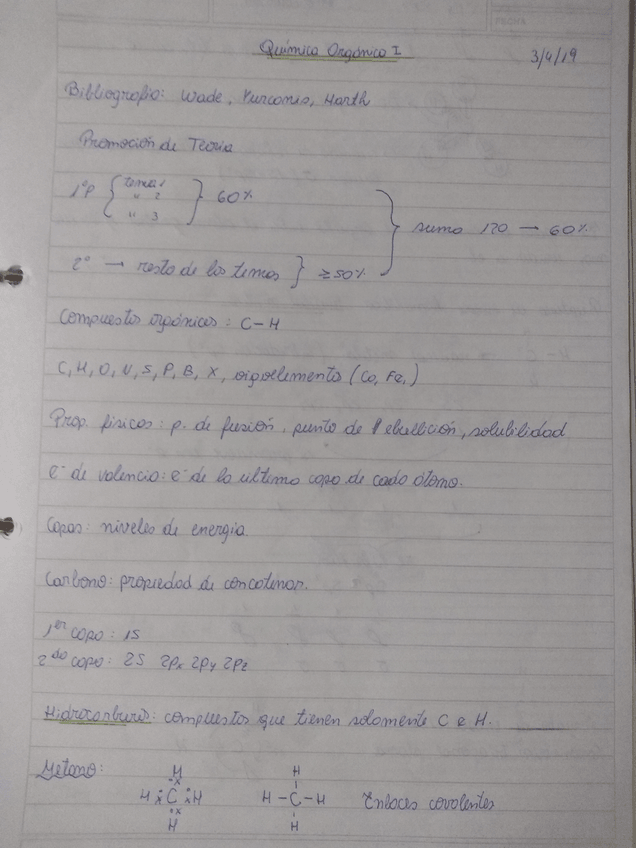 FECHA
Química Orgánica I 3/4/19
Bibliografía: Wade, Yurconis, Harth
Promoción de Teoría
1°P { temas 1 } 60%
" 2
" 3
} suma 120 → 60%
2° → resto de los temas } ≥50%
Compuestos orgánicos: C-H
C, H, O, N, S, P, B, X, oligoelemento (Co, Fe,)
Prop. físicas: p. de fusión, punto de ebullición, solubilidad
e⁻ de valencia: e⁻ de la última capa de cada átomo.
Capas: niveles de energía.
Carbono: propiedad de concatenar.
1er capa: 1S
2da capa: 2S 2Px 2Py 2Pz
Hidrocarburos: compuestos que tienen solamente C e H.
Metano:
H H
H C H H-C-H Enlaces covalentes
H H